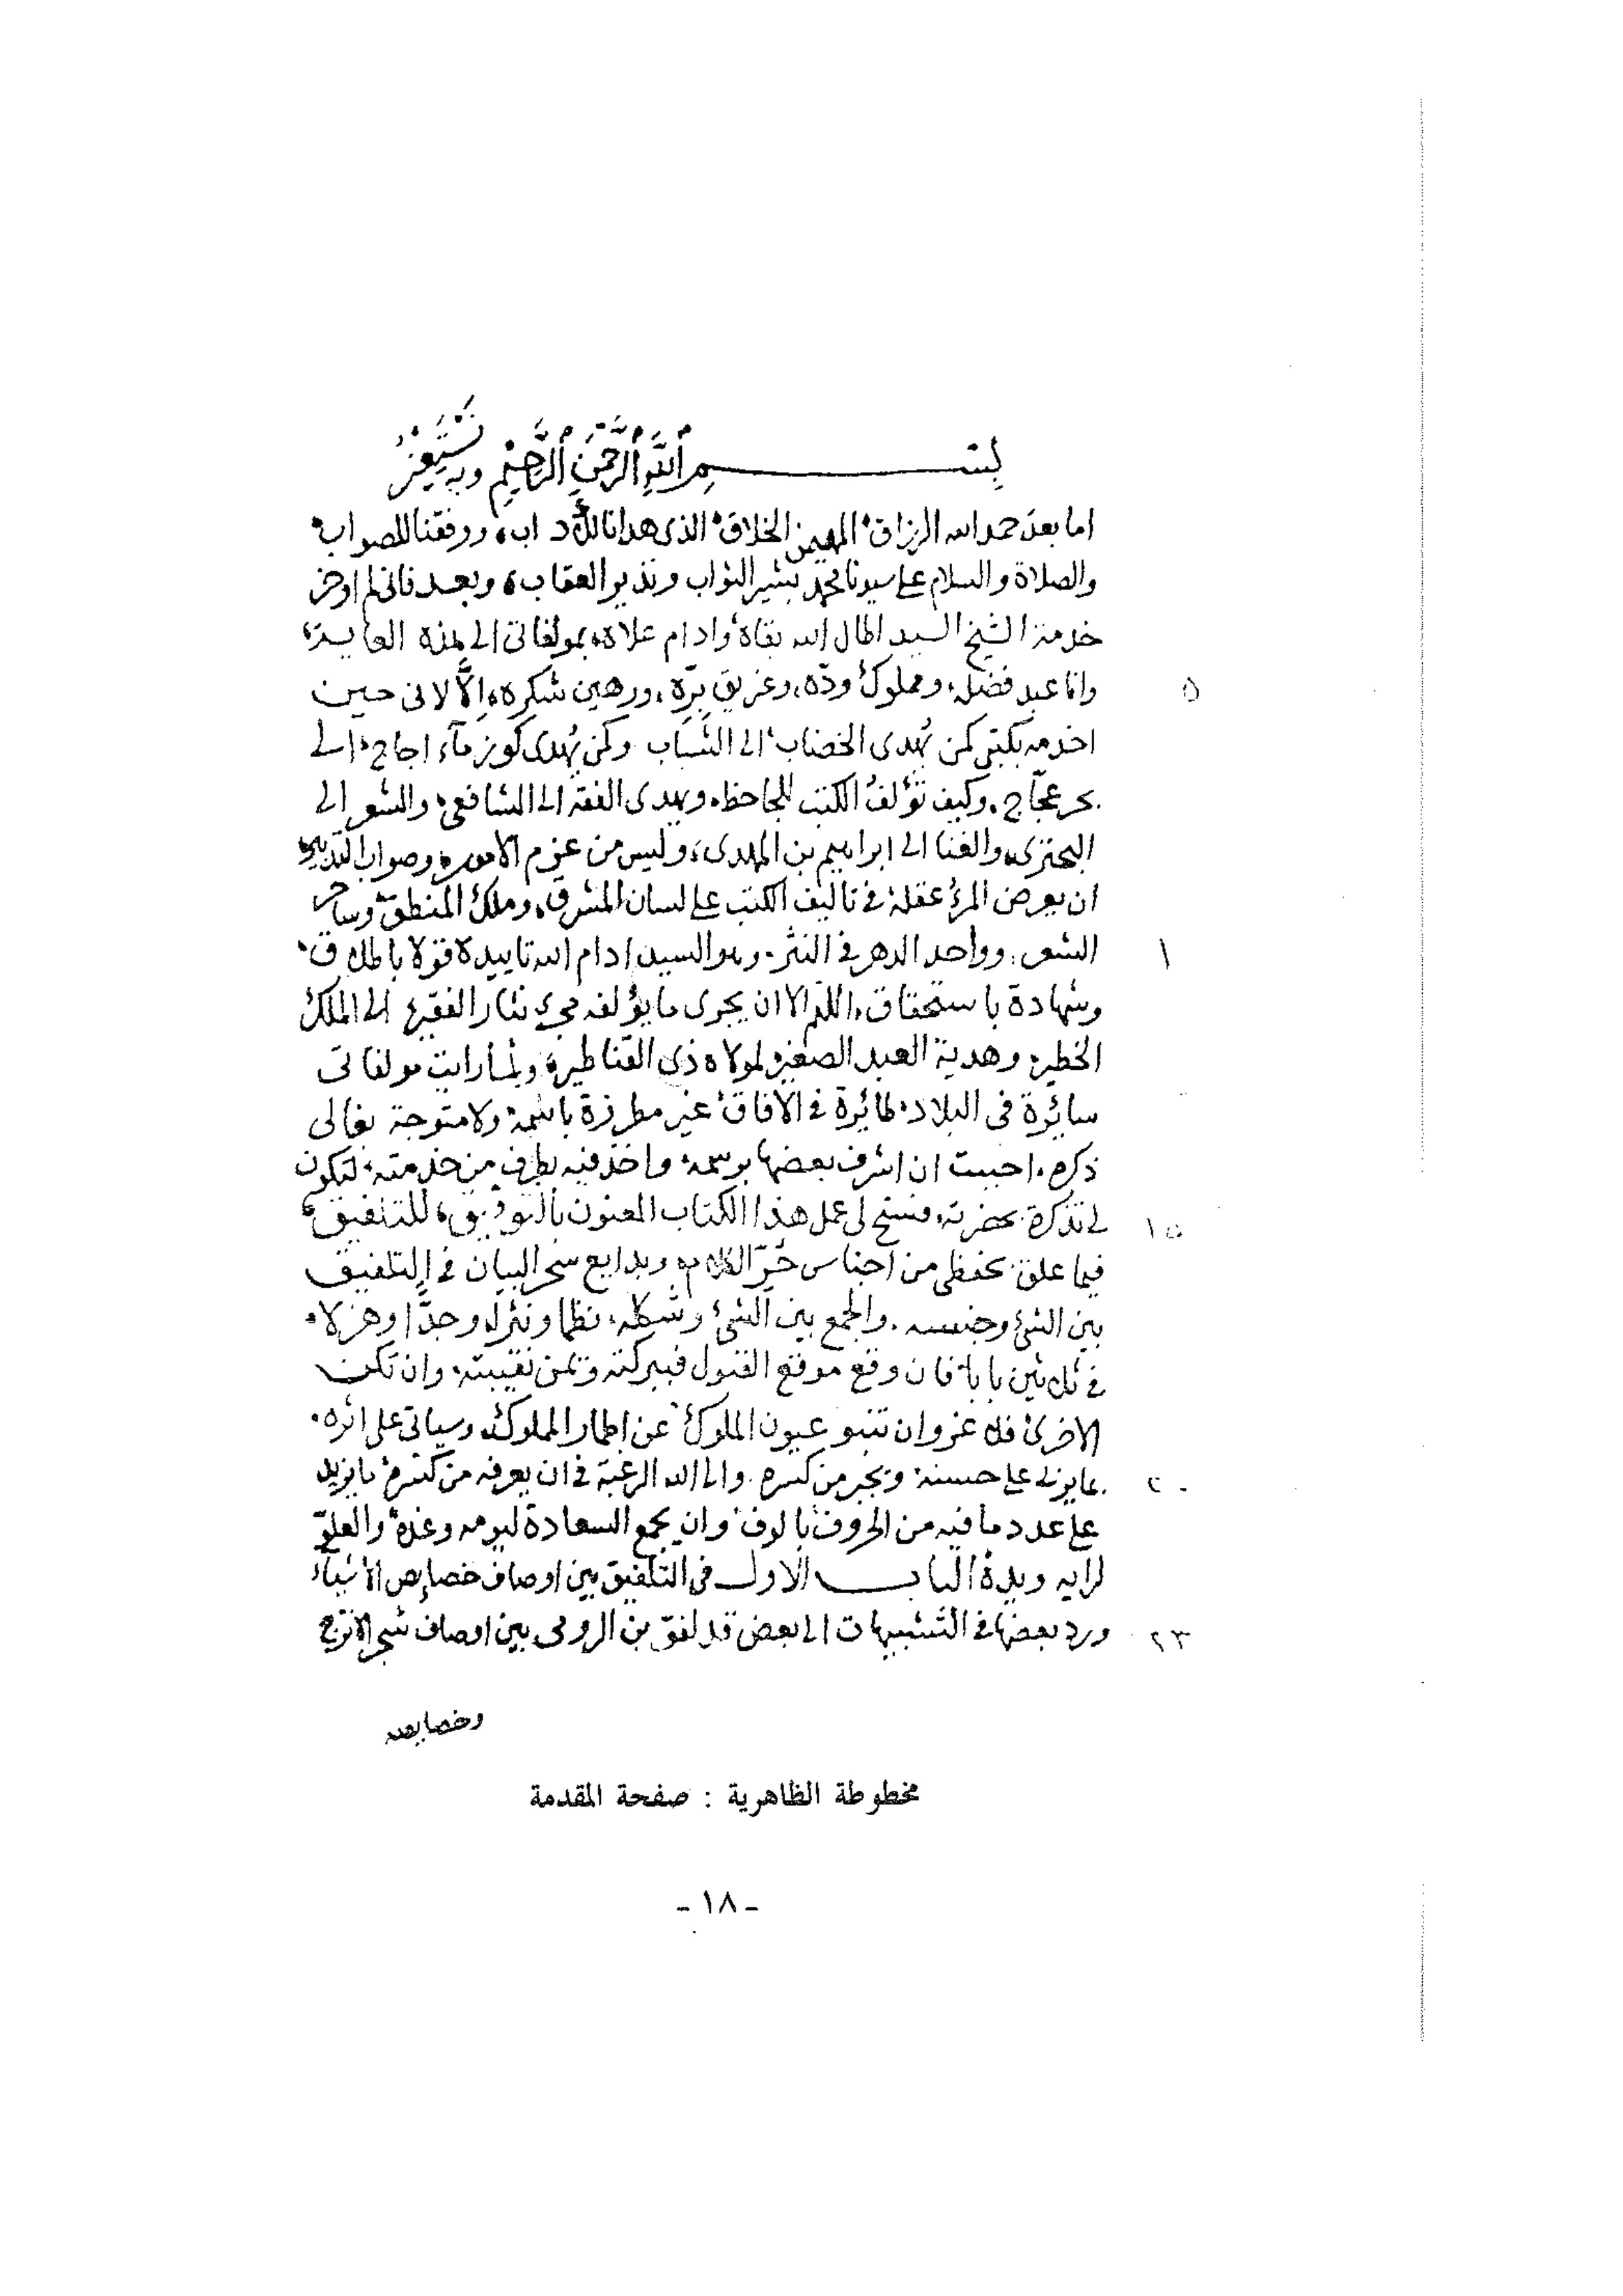 بسم الله الرحمن الرحيم وبه نستعين
اما بعد حمد الله الرزاق، المهيمن الخلاق، الذى هدانا للآداب، ووفقنا للصواب،
والصلاة والسلام على سيدنا محمد بشير الثواب ونذير العقاب، وبعد فانى لم اوخر
خدمة الشيخ السيد اطال الله بقاه، وادام علاه، بمولفاتى الى هذه الغاية،
٥ وانا عبد فضله، ومملوك ودّه، وغريق برّه، ورهين شكره، الّا لانى حين
اخدمه بكتبى كمن يُهدى الخضاب، الى الشباب وكمن يُهدى كوز مآء اجاج، الى
بحر عجّاج، وكيف تؤلف الكتب للجاحظ، ويهدى الفقه الى الشافعى، والشعر الى
البحترى، والغنا الى ابراهيم بن المهدى، وليس من عزم الامور، وصواب التدبير،
ان يعرض المرؤ عقله، فى تاليف الكتب على لسان المشرق، وملك المنطق، وساحر
١ الشعر، وواحد الدهر فى النثر، وهو السيد ادام الله تاييده قولا باطلاق،
وشهادة باستحقاق، اللهم الا ان يجرى ما يؤلفه مجرى نثار الفقير، الى الملك
الخطير، وهدية العبد الصغير لمولاه ذى القناطير، ولما رايت مولفاتى
سائرة فى البلاد، طائرة فى الافاق، غير مطرزة باسمه، ولا متوجة بعالى
ذكره، احببت ان اشرف بعضها برسمه، واخذ فيه بطرف من خدمته، لتكون
١٥ لى تذكرة بحضرته، فسنح لى عمل هذا الكتاب المعنون بالتوفيق، للتلفيق،
فيما علق بحفظى من اجناس حُرّ الكلام، وبدايع سحر البيان فى التلفيق
بين الشئ وجنسه، والجمع بين الشئ وشكله، نظما ونثرا، وجدًّا وهزلا،
فى ثلاثين بابا، فان وقع موقع القبول فببركته ويمن نقيبته، وان تكن
الاخرى، فلا غرو ان تنبو عيون الملوك، عن اطمار المملوك، وسياتى على اثره،
٢٠ مايربى على حسنه، ويجبر من كسره، والى الله الرغبة فى ان يعرفه من بايزيد
على عدد ما فيه من الحروف، بالوف، وان يجمع السعادة ليومه وغده، والعلوّ
لرايه ويده، الباب الاول فى التلفيق بين اوصاف خصايص الاشيآء
٢٣ ورد بعضها فى التشبيهات الى بعض قد لفق بن الرومى بين اوصاف شجر الاترج
وخصايصه
مخطوطة الظاهرية : صفحة المقدمة
- ١٨ -